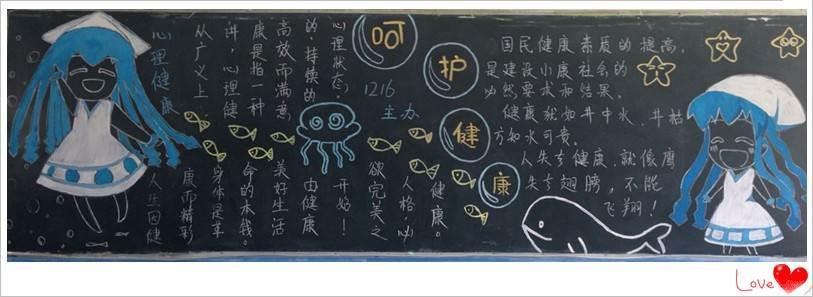 呵护健康
1216
主办
心理健康
从广义上
讲，心理健
康是指一种
高效而满意
的、持续的
心理状态。
人生因健
康而精彩
身体是革
命的本钱。
美好生活
由健康
开始！
欲完美之
人格，必
健康。
国民健康素质的提高，
是建设小康社会的
必然要求和结果。
健康就如井中水，井枯
方知水可贵。
人失去健康，就像鹰
失去翅膀，不能
飞翔！
Love